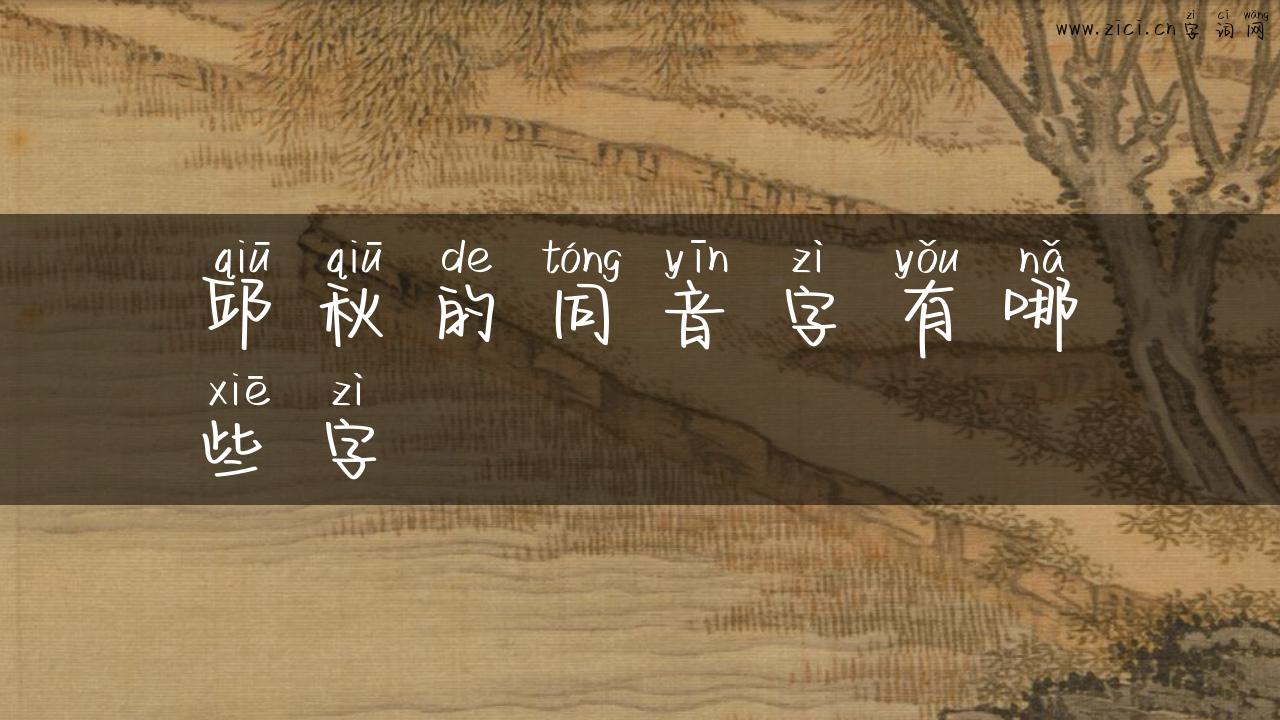 zì cí wǎng
www.zici.cn 字词网
qiū qiū de tóng yīn zì yǒu nǎ
邱秋的同音字有哪
xiē zì
些字